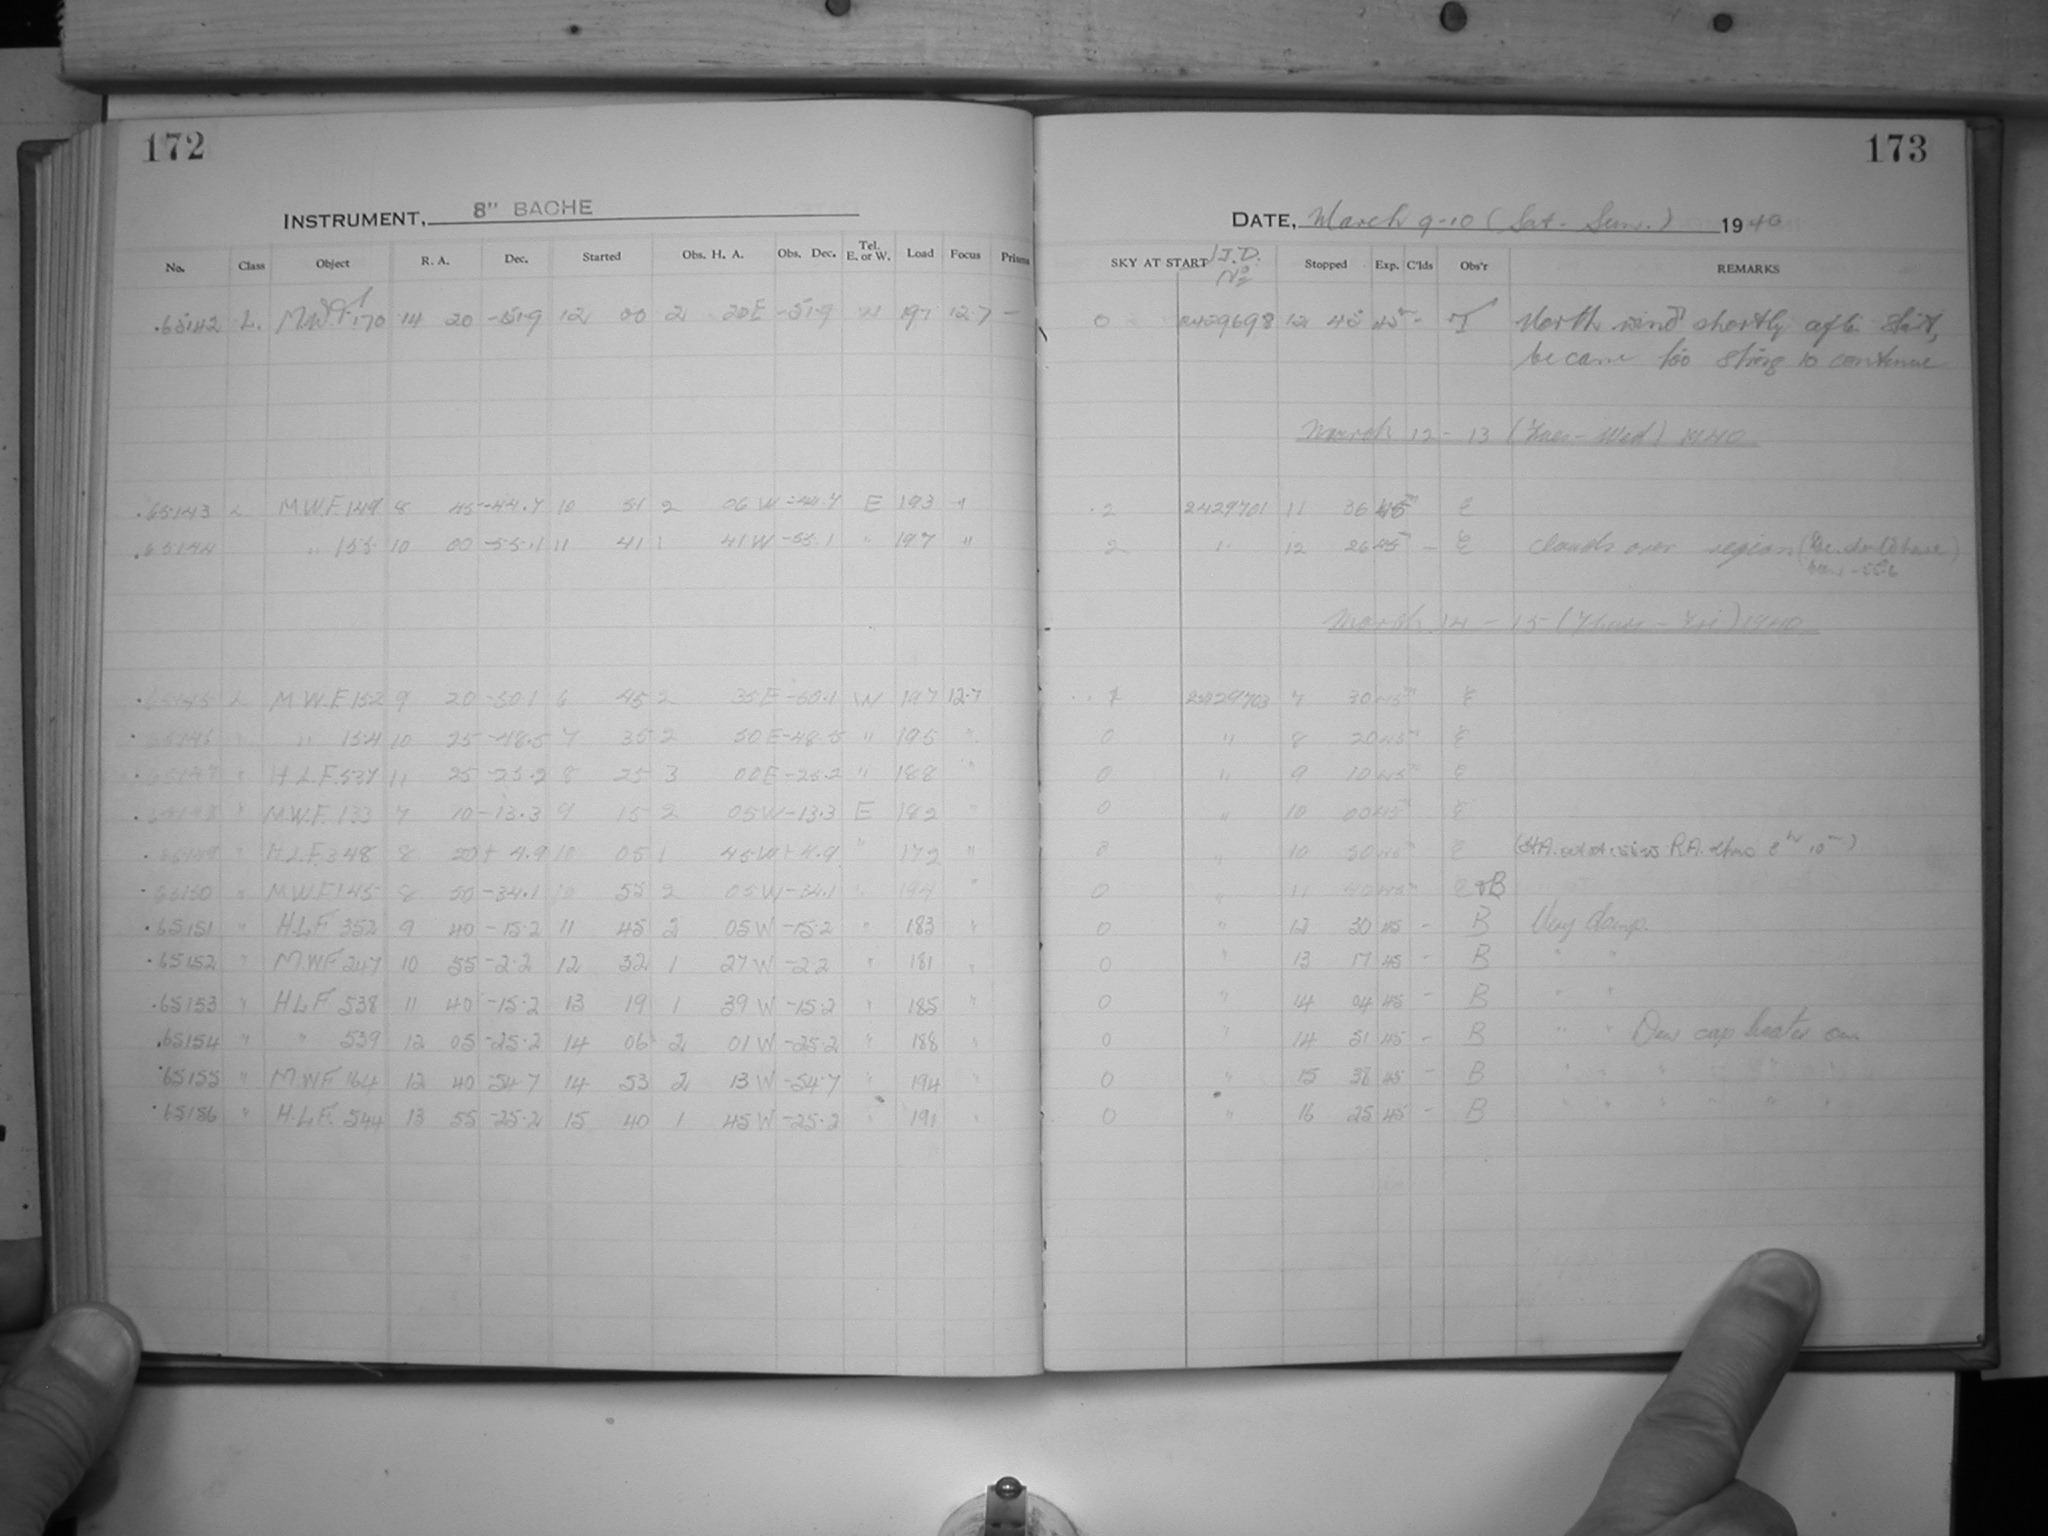 172
INSTRUMENT, 8" BACHE
No. Class Object R. A. Dec. Started Obs. H. A. Obs. Dec. Tel. E. or W. Load Focus Prisms
.65142 L. M.W.F. 170 14 20 -51.9 12 00 2 20E -51.9 W 197 12.7 —
.65143 L M.W.F. 149 8 45 -44.7 10 51 2 06 W -44.7 E 193 "
.65144 " 155 10 00 -55.1 11 41 1 41 W -55.1 " 197 "
.65145 L M.W.F. 152 9 20 -50.1 6 45 2 35 E -50.1 W 197 12.7
65146 " " 154 10 25 -48.5 7 35 2 50 E -48.5 " 195 "
65147 " H.L.F. 537 11 25 -25.2 8 25 3 00 E -25.2 " 188 "
65148 " M.W.F. 133 7 10 -13.3 9 15 2 05 W -13.3 E 182 "
65149 " H.L.F. 348 8 20 + 4.9 10 05 1 45 W + 4.9 " 172 "
65150 " M.W.F. 145 8 50 -34.1 10 55 2 05 W -34.1 " 194 "
.65151 " H.L.F. 352 9 40 -15.2 11 45 2 05 W -15.2 " 183 "
.65152 " M.W.F. 247 10 55 -2.2 12 32 1 27 W -2.2 " 181 "
.65153 " H.L.F. 538 11 40 -15.2 13 19 1 39 W -15.2 " 185 "
.65154 " " 539 12 05 -25.2 14 06 2 01 W -25.2 " 188 "
.65155 " M.W.F. 164 12 40 -54.7 14 53 2 13 W -54.7 " 194 "
.65156 " H.L.F. 544 13 55 -25.2 15 40 1 45 W -25.2 " 191 "
173
DATE, March 9-10 (Sat - Sun.) 1940
SKY AT START J.D. No Stopped Exp. C'lds Obs'r REMARKS
0 2429698 12 45 45m - T North wind shortly after start,
became too strong to continue
March 12 - 13 (Tues - Wed) 1940
2 2429701 11 36 45m E
2 " 12 26 45 - E Clouds over region
March 14 - 15 (Thurs - Fri) 1940
2429703 7 30 45m E
0 " 8 20 45m E
0 " 9 10 45m E
0 " 10 00 45m E
" 10 50 45m E
0 " 11 40 45m E & B
0 " 12 30 45 - B Very damp.
0 " 13 17 45 - B " "
0 " 14 04 45 - B " "
0 " 14 51 45 - B " " Dew cap heater on
0 " 15 38 45 - B " " " " " "
0 " 16 25 45 - B " " " " " "